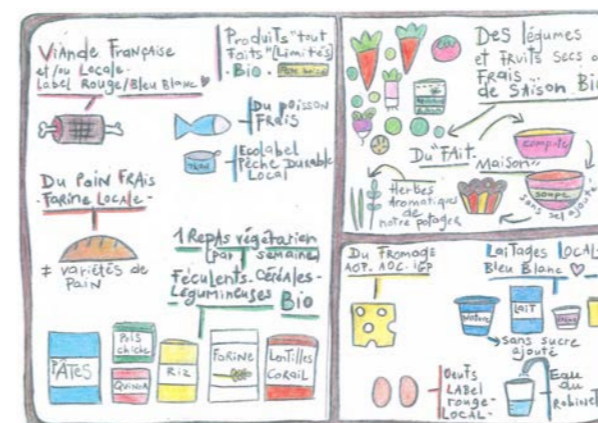 Viande Française
et/ou Locale.
Label Rouge/Bleu Blanc
Produits "tout
faits" (Limités)
. Bio .
Du poisson
Frais
THON
Ecolabel
Pêche Durable
Local
Du Pain Frais
-Farine Locale-
≠ variétés de
Pain
1 Repas végétarien
(par semaine)
Féculents-Céréales-
Légumineuses Bio
PÂTES
Pois
chiche
Quinoa
Riz
Farine
Lentilles
Corail
Des légumes
et Fruits secs o
Frais ...
de Saison. Bi
Du "Fait-
Maison"
compote
soupe
sans sel ajouté
Herbes
Aromatiques
de
notre potager
Du Fromage
AOP. AOC. IGP
Laitages Local
Bleu Blanc
Nature
Lait
sans sucre
ajouté
Oeufs
Label
rouge-
LOCAL-
Eau
du
Robinet